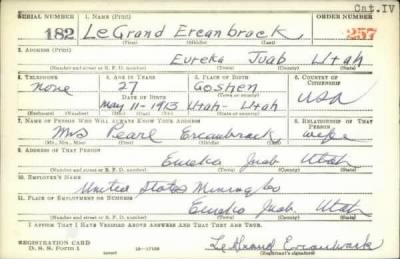 Cat. IV
SERIAL NUMBER 1. NAME (Print) ORDER NUMBER
182 LeGrand Ercanbrack 257
(First) (Middle) (Last)
2. ADDRESS (Print)
Eureka Juab Utah
(Number and street or R. F. D. number) (Town) (County) (State)
3. TELEPHONE 4. AGE IN YEARS 5. PLACE OF BIRTH 6. COUNTRY OF CITIZENSHIP
none 27 Goshen
DATE OF BIRTH (Town or county)
May 11-1913 Utah - Utah USA
7. NAME OF PERSON WHO WILL ALWAYS KNOW YOUR ADDRESS 8. RELATIONSHIP OF THAT PERSON
Mrs Pearl Ercanbrack wife
(Mr., Mrs., Miss) (First) (Middle) (Last)
9. ADDRESS OF THAT PERSON
Eureka Juab Utah
(Number and street or R. F. D. number) (Town) (County) (State)
10. EMPLOYER'S NAME
United States Mining Co
11. PLACE OF EMPLOYMENT OR BUSINESS
Eureka Juab Utah
(Number and street or R. F. D. number) (Town) (County) (State)
I AFFIRM THAT I HAVE VERIFIED ABOVE ANSWERS AND THAT THEY ARE TRUE.
REGISTRATION CARD
D. S. S. Form 1 LeGrand Ercanbrack
(Registrant's signature)